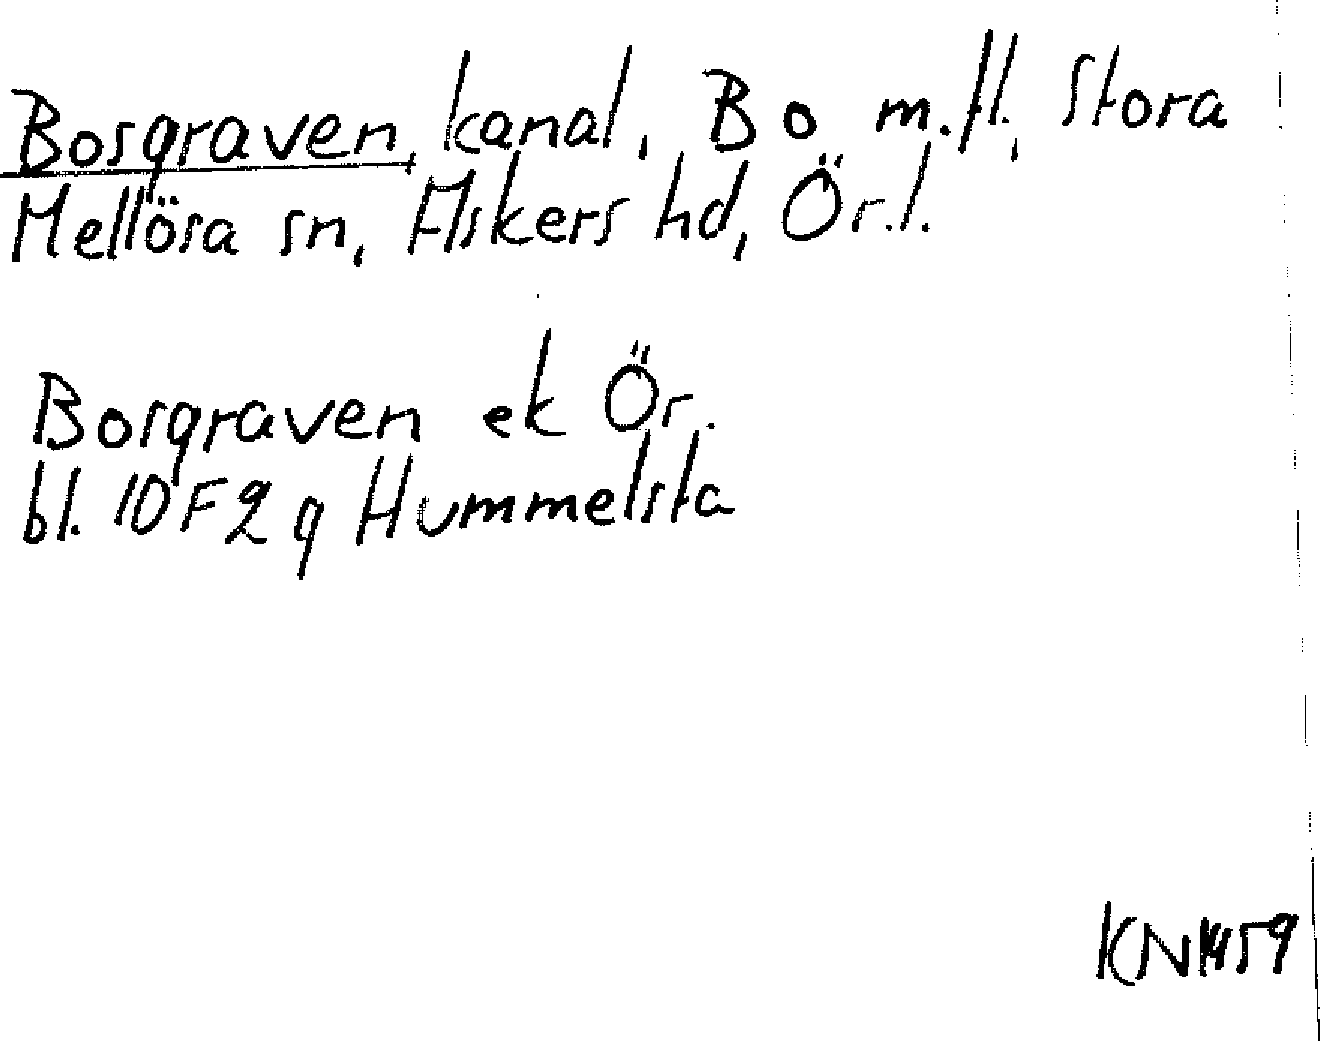 Bosgraven, kanal, Bo m.fl., Stora
Mellösa sn, Askers hd, Ör.l.
Bosgraven ek Ör.
bl. 10F2g Hummelsta